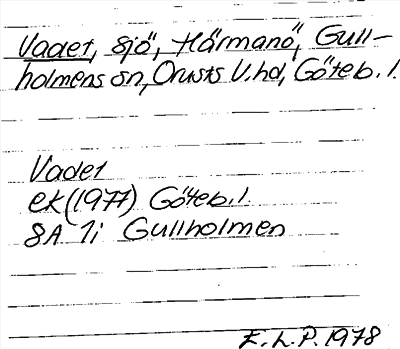 Vadet, sjö, Härmanö, Gull-
holmens sn, Orusts V.hd, Göteb.l.
Vadet
ek (1977) Göteb.l.
8A 1i Gullholmen
E.L.P. 1978